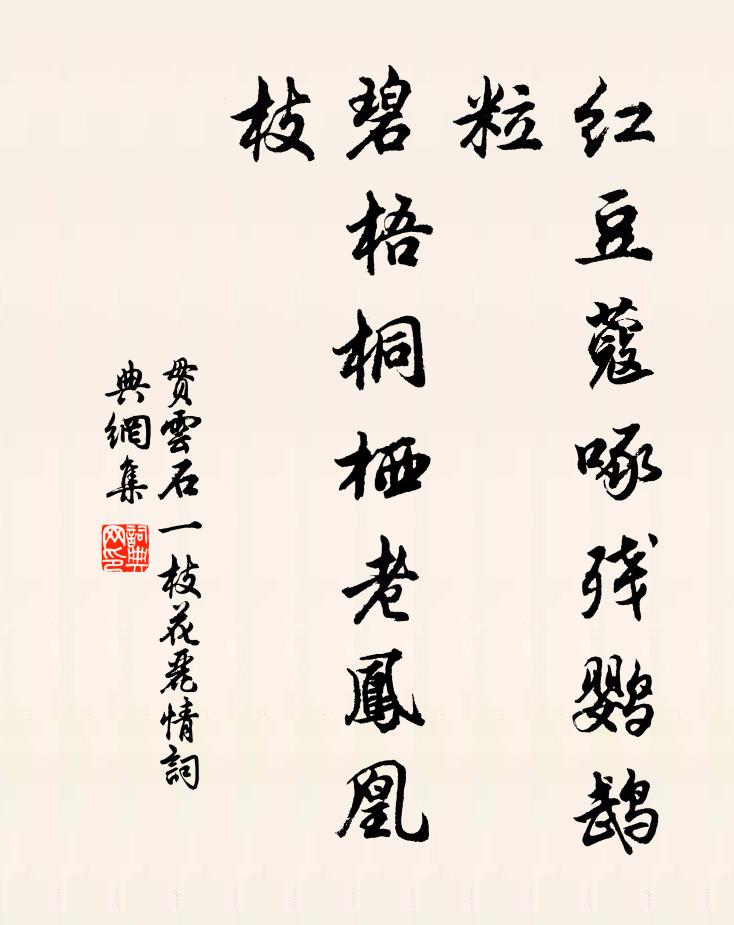 红豆蔻啄残鹦鹉
粒
碧梧桐栖老鳳凰
枝
贯雲石一枝花麗情詞
典網集
詞典网印